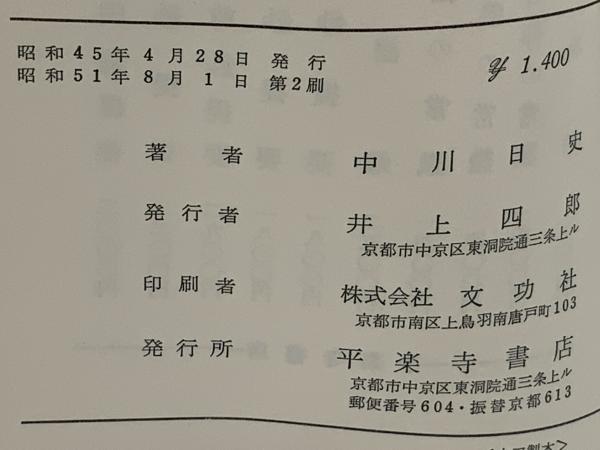 昭和45年4月28日 発行
昭和51年8月1日 第2刷
¥ 1.400
著者 中川日史
発行者 井上四郎
京都市中京区東洞院通三条上ル
印刷者 株式会社 文功社
京都市南区上鳥羽南唐戸町103
発行所 平楽寺書店
京都市中京区東洞院通三条上ル
郵便番号604・振替京都613